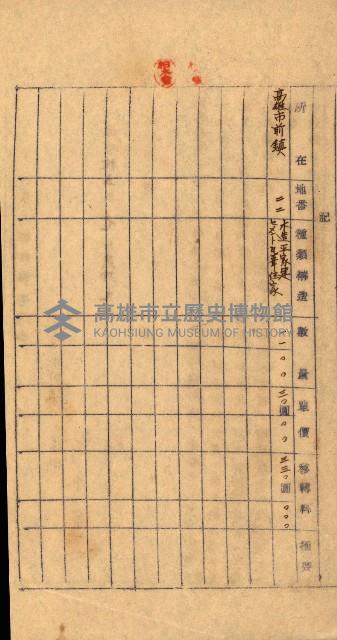 記
所在
地番
種類構造
數量
單價
移轉料
摘要
高雄市前鎮
二二
木造平家建
住家
一〇〇
三〇圓〇〇
三三〇圓〇〇〇
高雄市立歷史博物館
KAOHSIUNG MUSEUM OF HISTORY